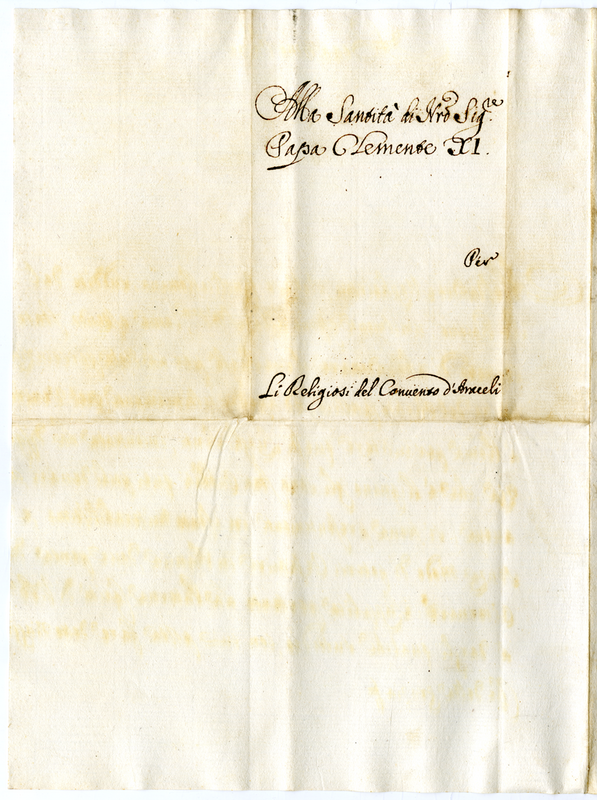 Alla Santità di Nrõ Sig.re
Papa Clemente XI.
Per
Li Religiosi del Conuento d'Araceli